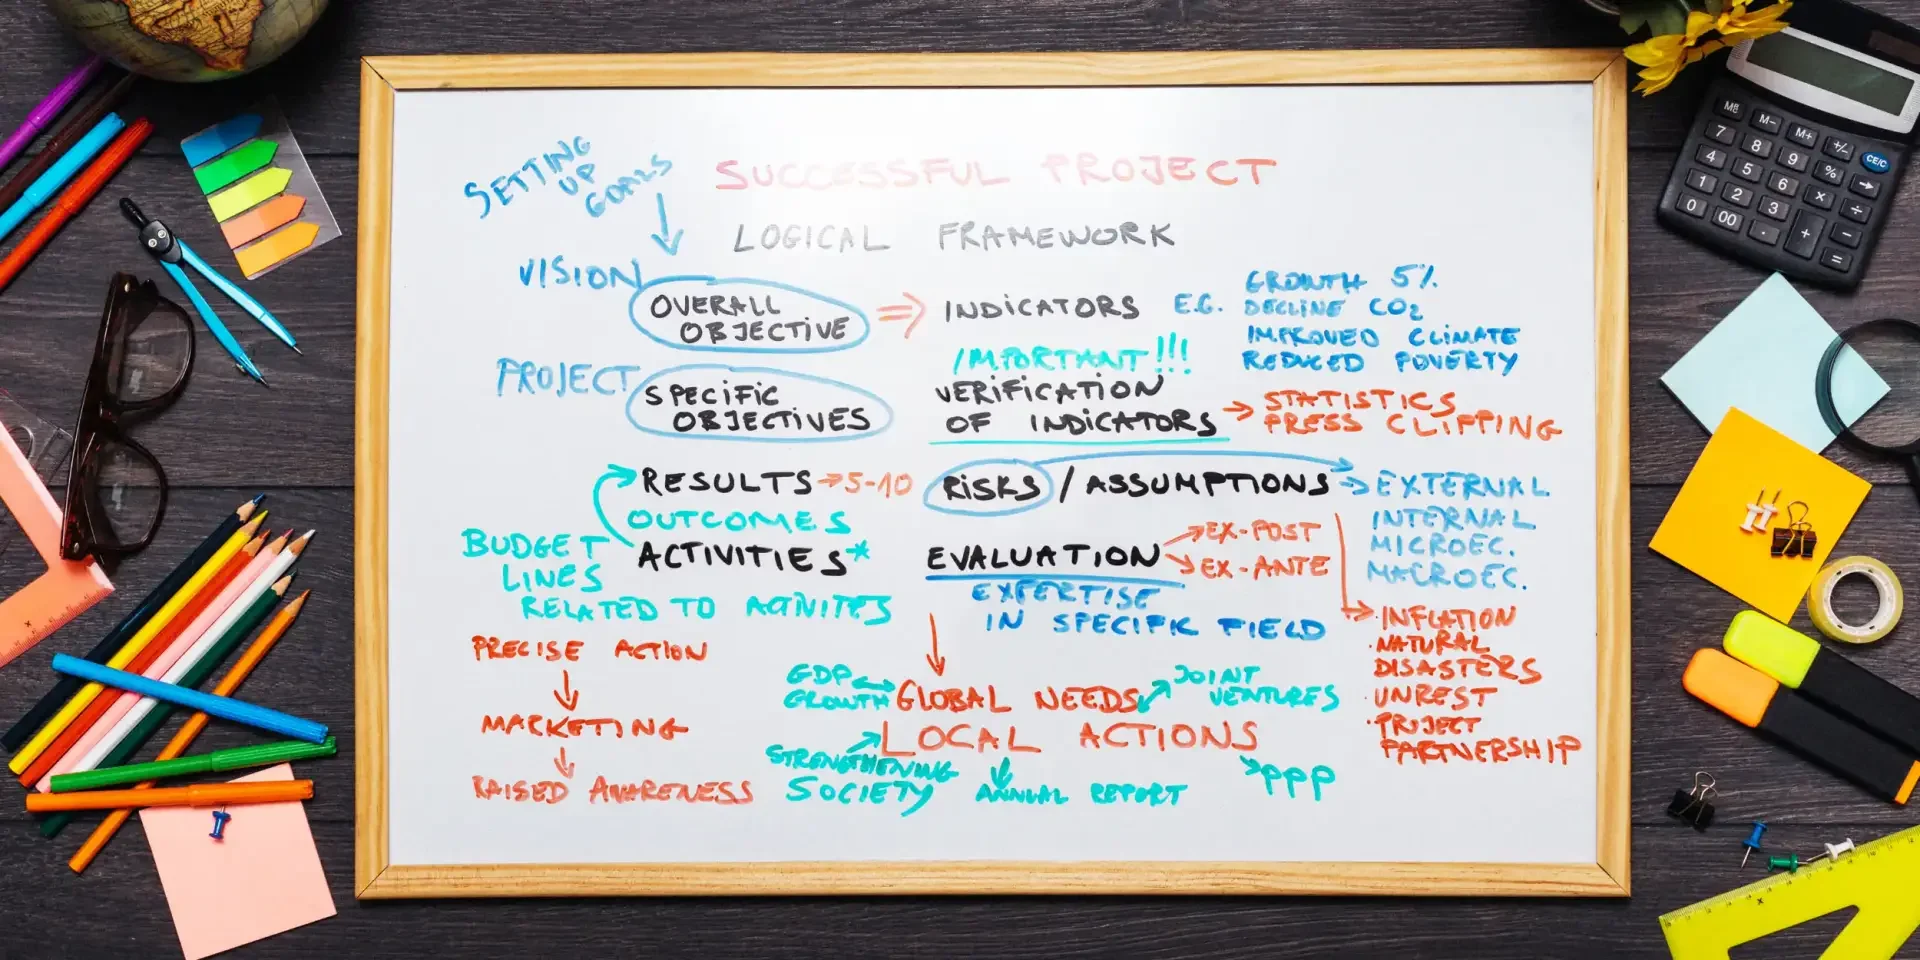 SETTING
UP
GOALS
SUCCESSFUL PROJECT
LOGICAL FRAMEWORK
VISION
OVERALL
OBJECTIVE
⇒ INDICATORS E.G.
GROWTH 5%
DECLINE CO2
IMPROVED CLIMATE
REDUCED POVERTY
PROJECT
SPECIFIC
OBJECTIVES
IMPORTANT!!!
VERIFICATION
OF INDICATORS →
STATISTICS
PRESS CLIPPING
RESULTS → 5-10
OUTCOMES
ACTIVITIES*
BUDGET
LINES
RELATED TO ACTIVITES
RISKS / ASSUMPTIONS → EXTERNAL
INTERNAL
MICROEC.
MACROEC.
EVALUATION
→ EX-POST
→ EX-ANTE
EXPERTISE
IN SPECIFIC FIELD
· INFLATION
· NATURAL
DISASTERS
· UNREST
· PROJECT
PARTNERSHIP
PRECISE ACTION
↓
MARKETING
↓
RAISED AWARENESS
GDP
GROWTH
GLOBAL NEEDS
JOINT
VENTURES
LOCAL ACTIONS
STRENGTHENING
SOCIETY
ANNUAL REPORT
PPP
MB M- M+ +/- CE/C
7 8 9 % →
4 5 6 × ÷
1 2 3 + −
0 00 . =